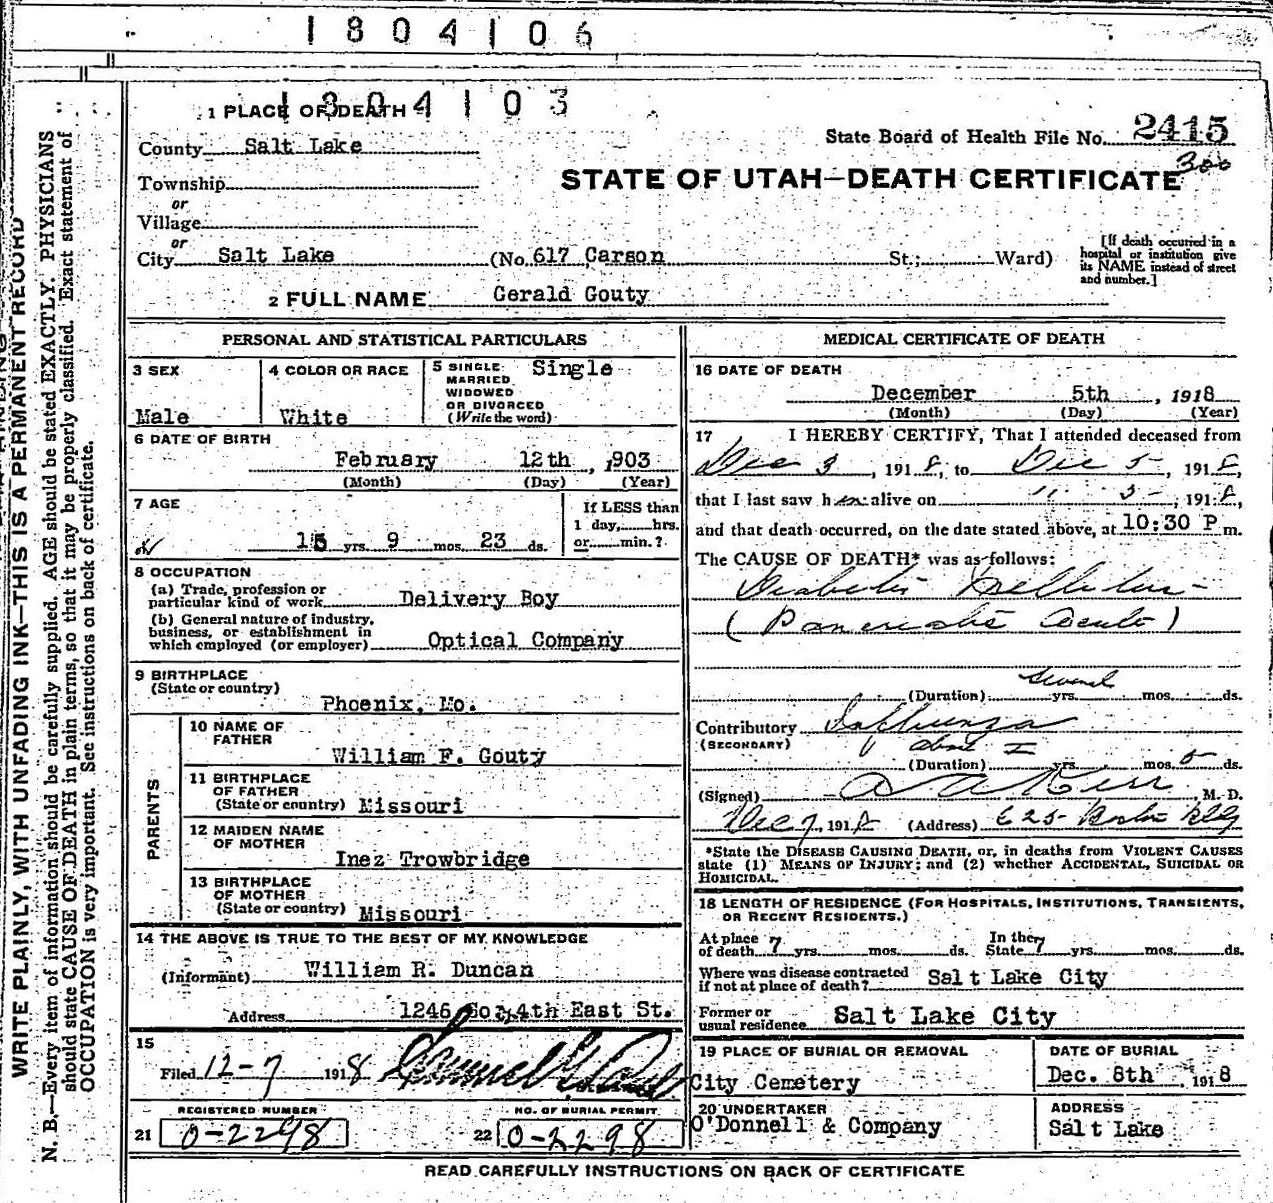 1804106
1804103
1 PLACE OF DEATH
County Salt Lake
State Board of Health File No. 2415
300
Township
or
Village
or
STATE OF UTAH—DEATH CERTIFICATE
City Salt Lake (No. 617 Carson St.; Ward)
[If death occurred in a
hospital or institution give
its NAME instead of street
and number.]
2 FULL NAME Gerald Gouty
PERSONAL AND STATISTICAL PARTICULARS
3 SEX
Male
4 COLOR OR RACE
White
5 SINGLE
MARRIED
WIDOWED
OR DIVORCED
(Write the word)
Single
6 DATE OF BIRTH
February 12th, 1903
(Month) (Day) (Year)
7 AGE
15 yrs. 9 mos. 23 ds.
If LESS than
1 day, hrs.
or min.?
8 OCCUPATION
(a) Trade, profession or
particular kind of work Delivery Boy
(b) General nature of industry,
business, or establishment in
which employed (or employer) Optical Company
9 BIRTHPLACE
(State or country)
Phoenix, Mo.
PARENTS
10 NAME OF
FATHER
William F. Gouty
11 BIRTHPLACE
OF FATHER
(State or country) Missouri
12 MAIDEN NAME
OF MOTHER
Inez Trowbridge
13 BIRTHPLACE
OF MOTHER
(State or country) Missouri
14 THE ABOVE IS TRUE TO THE BEST OF MY KNOWLEDGE
(Informant) William R. Duncan
Address 1246 So. 4th East St.
15
Filed 12-7 1918
REGISTERED NUMBER
21 0-2298
NO. OF BURIAL PERMIT
22 0-2298
MEDICAL CERTIFICATE OF DEATH
16 DATE OF DEATH
December 5th, 1918
(Month) (Day) (Year)
17 I HEREBY CERTIFY, That I attended deceased from
Dec 3, 1918, to Dec 5, 1918,
that I last saw him alive on " 5, 1918,
and that death occurred, on the date stated above, at 10:30 P m.
The CAUSE OF DEATH* was as follows:
Diabetis Mellitus
(Pancreatic Acute)
(Duration) several yrs. mos. ds.
Contributory Influenza
(SECONDARY)
(Duration) yrs. mos. 5 ds.
(Signed) Kerr, M. D.
Dec 7, 1918 (Address) 625 Boston Bldg
*State the DISEASE CAUSING DEATH, or, in deaths from VIOLENT CAUSES
state (1) MEANS OF INJURY; and (2) whether ACCIDENTAL, SUICIDAL OR
HOMICIDAL.
18 LENGTH OF RESIDENCE (FOR HOSPITALS, INSTITUTIONS, TRANSIENTS,
OR RECENT RESIDENTS.)
At place
of death 7 yrs. mos. ds.
In the
State 7 yrs. mos. ds.
Where was disease contracted
if not at place of death? Salt Lake City
Former or
usual residence Salt Lake City
19 PLACE OF BURIAL OR REMOVAL
City Cemetery
DATE OF BURIAL
Dec. 8th, 1918
20 UNDERTAKER
O'Donnell & Company
ADDRESS
Salt Lake
READ CAREFULLY INSTRUCTIONS ON BACK OF CERTIFICATE
WRITE PLAINLY, WITH UNFADING INK—THIS IS A PERMANENT RECORD
N. B.—Every item of information should be carefully supplied. AGE should be stated EXACTLY. PHYSICIANS
should state CAUSE OF DEATH in plain terms, so that it may be properly classified. Exact statement of
OCCUPATION is very important. See instructions on back of certificate.